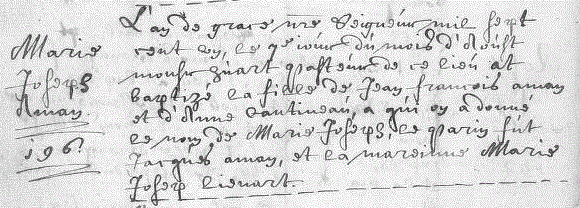 Marie
Joseph
Aman.
196.
L'an de grace nre Seigneur mil sept
cent un, le 9e jour du mois d'Aoust
monsr huart pasteur de ce lieu at
baptizé la fille de Jean françois aman
et d'Anne Cantineau, a qui on a donne
le nom de Marie Joseph, le parin fut
Jacques aman, et la mareinne Marie
Joseph lienart.